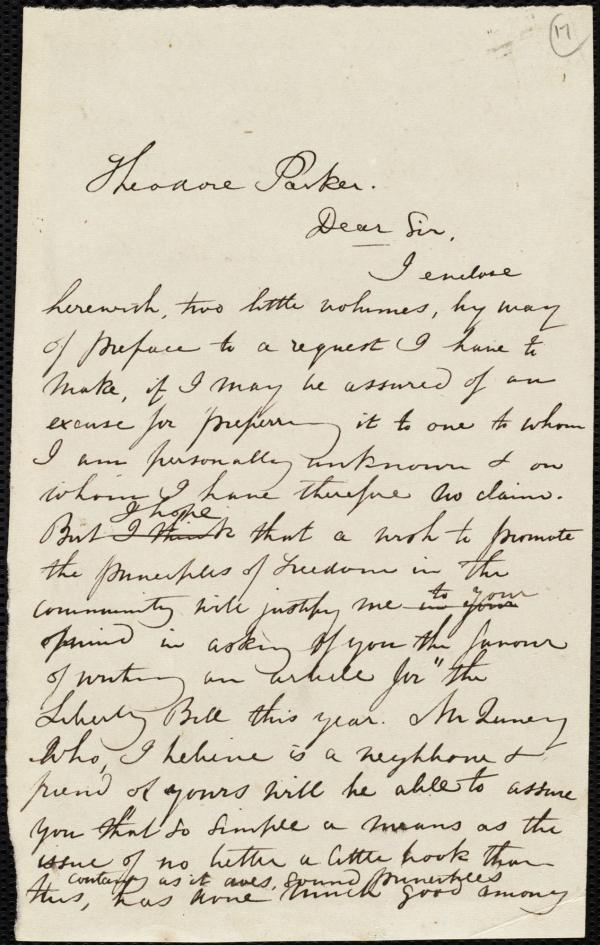 17
Theodore Parker.
Dear Sir,
I enclose
herewith, two little volumes, by way
of preface to a request I have to
make, if I may be assured of an
excuse for preferring it to one to whom
I am personally unknown & on
whom I have therefore no claim.
I hope
But I think that a wish to promote
the principles of Freedom in the
to your
community will justify me in your
mind in asking of you the favour
of writing an article for "the
Liberty Bell this year. Mr Quincy
who, I believe is a neighbour &
friend of yours will be able to assure
you that so simple a means as the
issue of no better a little book than
containing as it does, sound principles
this, has done much good among